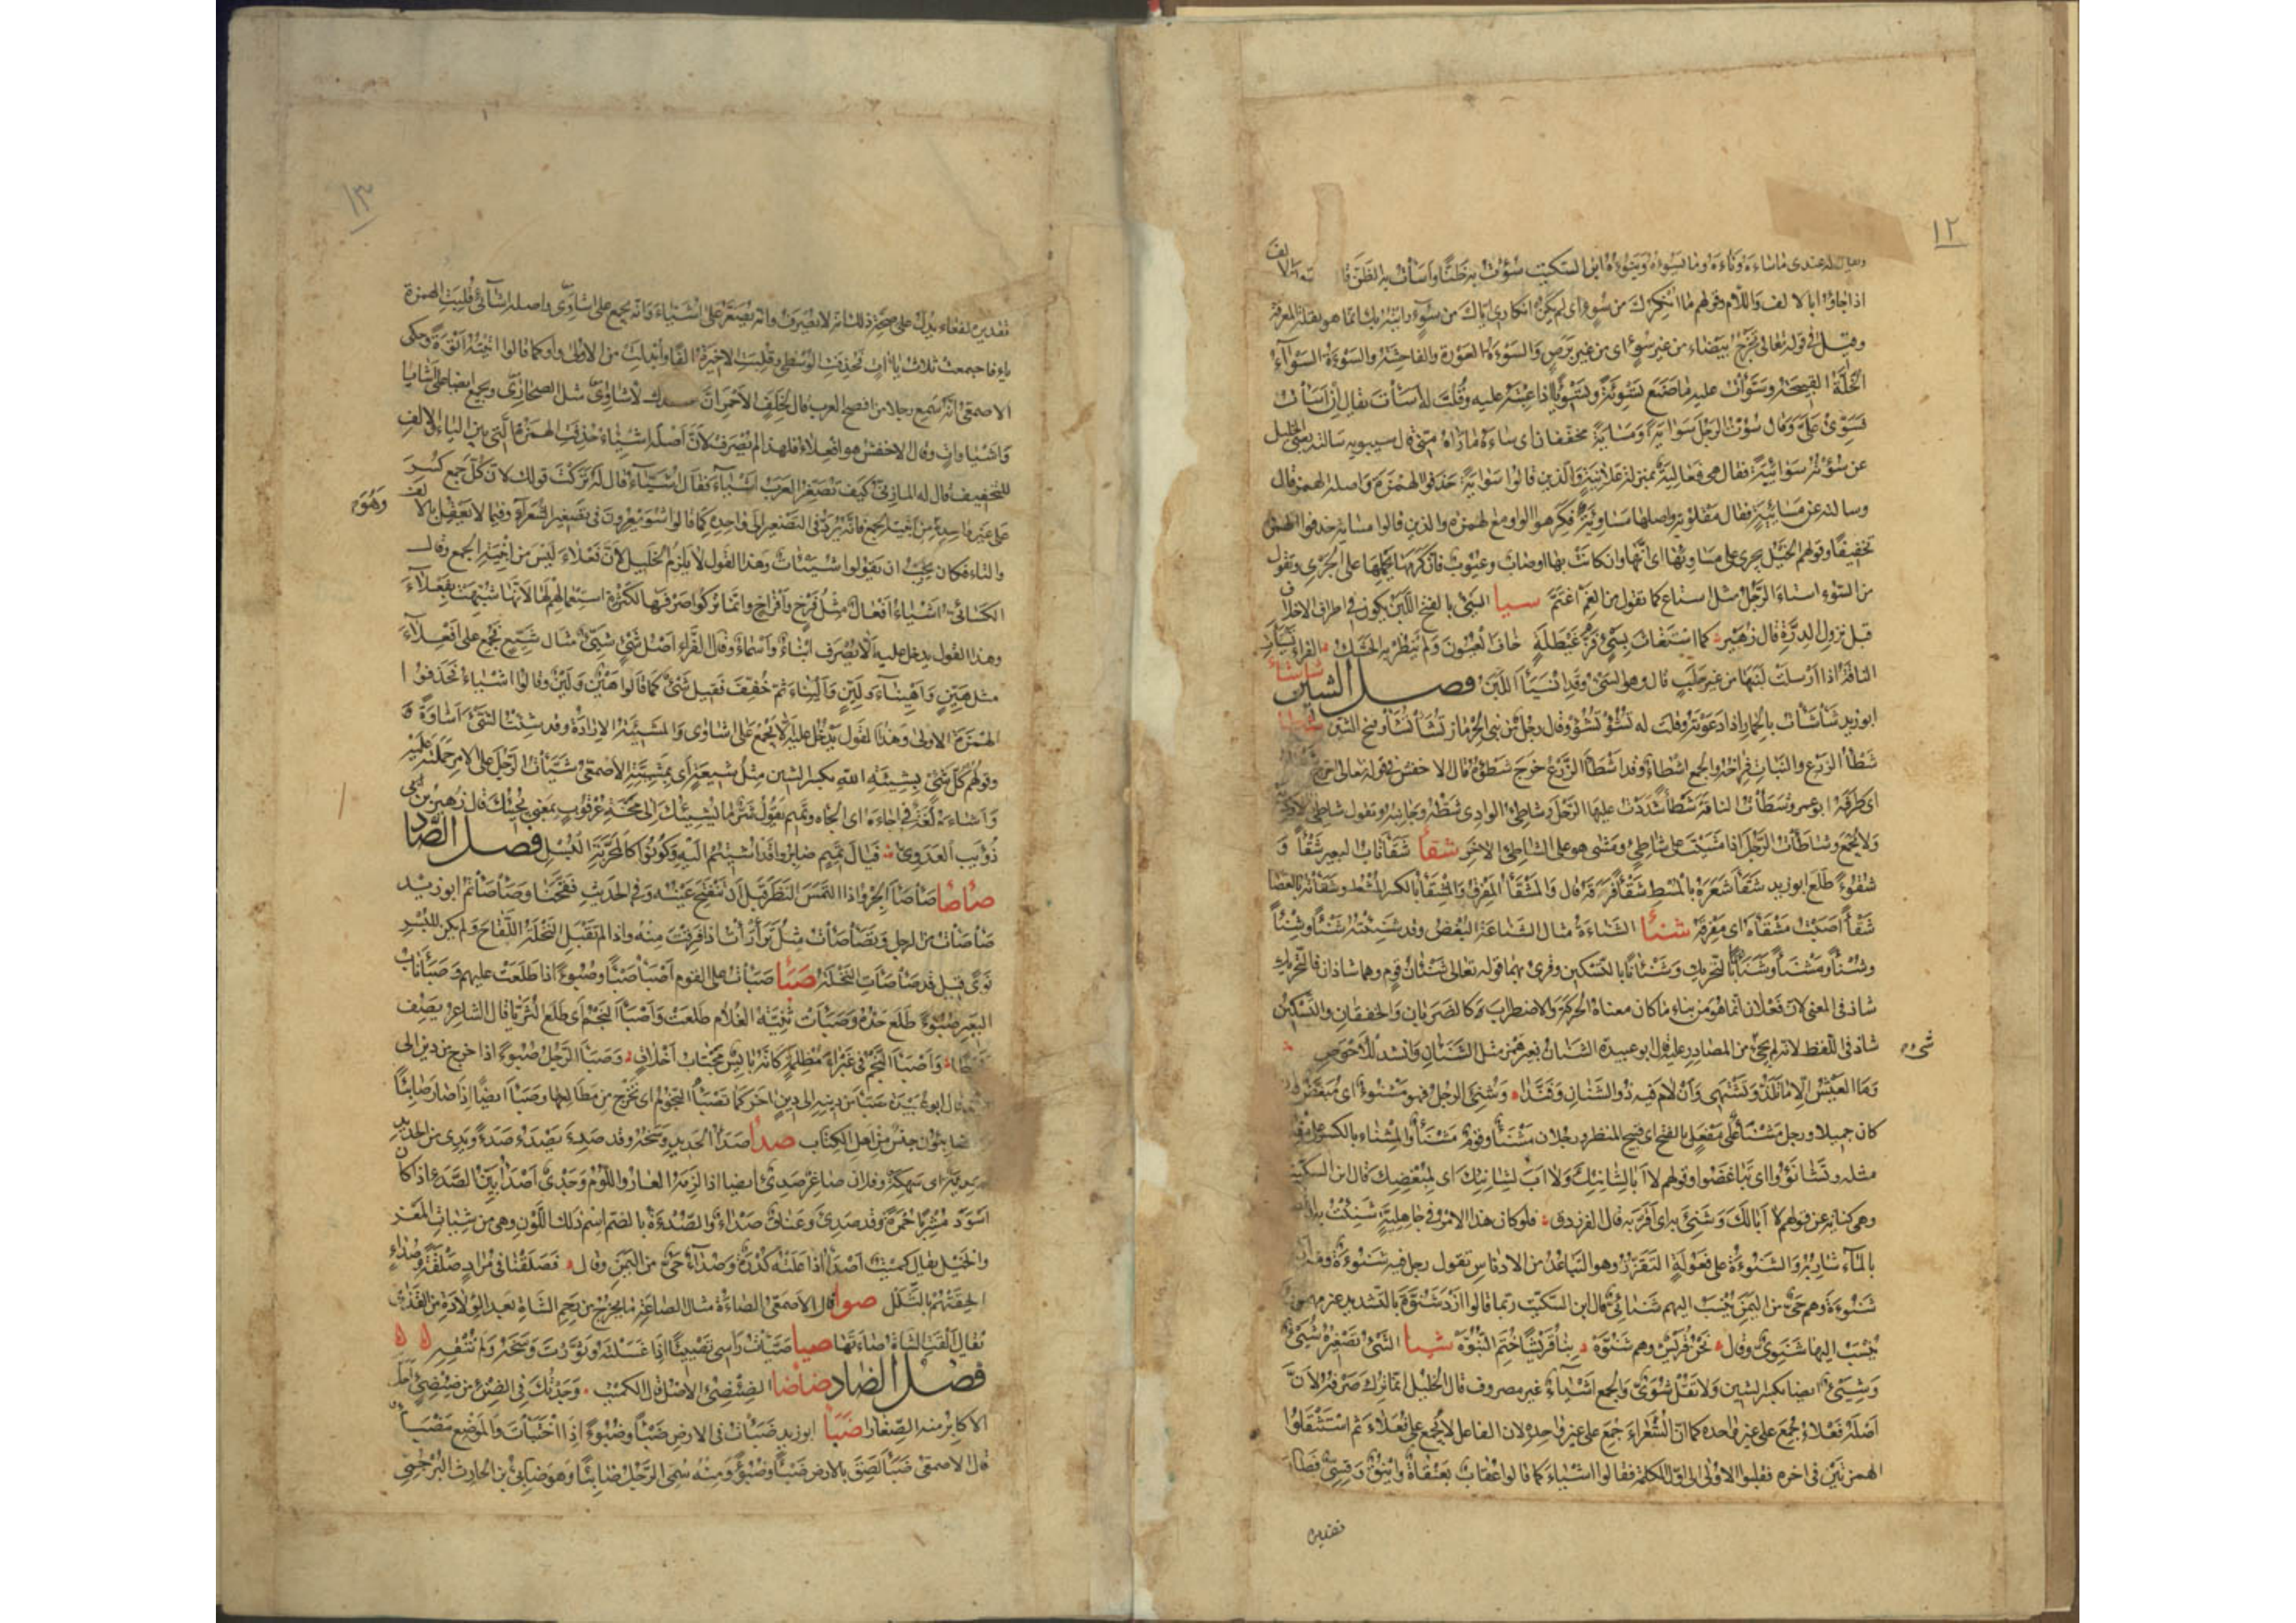 ١٢
له عندى ما ساءه وناءه وما يسوءه وينوءه ابن السكيت سؤت به ظنا واسأت به الظن
اذا جاؤا بالالف واللام وقولهم ما انكرك من سوء اى لم يكن انكارى اياك من سوء رايته بك انما هو لقلة المعرفة
وقيل فى قوله تعالى تخرج بيضاء من غير سوء اى من غير برص والسوءة العورة والفاحشة والسوءة السوآء
الخلة القبيحة وسوّأت عليه ما صنع تسوئة وتسويئا اذا عبته عليه وقلت له اسأت يقال ان اسأت
فسوّئ علىّ وقال سؤت الرجل سواية ومساية مخففان اى ساءه ما راه منى قال سيبويه سالته يعنى الخليل
عن سؤته سوائية فقال هى فعالية بمنزلة علانية والذين قالوا سواية حذفوا الهمزة واصله الهمز قال
وسالته عن مسائية فقال مقلوبة واصلها مساوئة فكرهوا الواو مع الهمزة والذين قالوا مساية حذفوا الهمز
تخفيفا وقولهم الخيل تجرى على مساويها اى انها وان كانت بها اوصاب وعيوب فان كرمها يحملها على الجرى وتقول
من السوء استاء الرجل مثل استاع كما تقول من الغم اغتم سيا السىء بالفتح اللبن يكون فى اطراف الاخلاف
قبل نزول الدرة قال زهير كما استغاث بسىء فز غيطلة خاف العيون ولم ينظر به الحشك الفراء
الناقة اذا ارسلت لبنها من غير حلب قال وهو السىء وقد انسيأ اللبن فصل الشين شاشا
ابو زيد شأشأت بالحمار اذا دعوته وقلت له تشؤ تشؤ وقال رجل من بنى الحرماز تشأ تشأ وفتح الشين
شطأ الزرع والنبات فراخه والجمع اشطاء وقد اشطأ الزرع خرج شطؤه قال الاخفش فى قوله تعالى اخرج
اى طرفه ابو عمرو شطأت الناقة شطأ شددت عليها الرحل وشاطئ الوادى شطه وجانبه وتقول شاطئ
ولا يجمع وشاطأت الرجل اذا مشيت على شاطئ ومشى هو على الشاطئ الاخر شقأ شقأ ناب البعير شقأ و
شقوءا طلع ابو زيد شقأ شعره بالمشط شقأ فرقه قال والمشقأ المفرق والمشقأ بالكسر المشط وشقأته بالعصا
شقأ اصبت مشقأه اى مفرقه شنأ الشناءة مثال الشناعة البغض وقد شنئته شنأ وشنأ
وشنأ ومشنأ وشنآنا بالتحريك وشنآنا بالتسكين وقرئ بهما قوله تعالى شنآن قوم وهما شاذان فالتحريك
شاذ فى المعنى لان فعلان انما هو من بناء ما كان معناه الحركة والاضطراب كالضربان والخفقان والتسكين
شاذ فى اللفظ لانه لم يجئ من المصادر عليه قال ابو عبيدة الشنان بغير همز مثل الشنآن وانشد للاحوص
شىء
وما العيش الا ما تلذ وتشتهى وان لام فيه ذو الشنان وفندا وشنئ الرجل فهو مشنوء اى مبغض
كان جميلا ورجل مشنأ على مفعل بالفتح اى قبيح المنظر ورجلان مشنأ وقوم مشنأ والمشناء بالكسر على
مثله وتشانؤوا اى تباغضوا وقولهم لا ابا لشانئك ولا اب لشانئك اى لمبغضك قال ابن السكيت
وهى كناية عن قولهم لا ابا لك وشنئ به اى اقر به قال الفرزدق فلو كان هذا الامر فى جاهلية شنئت
بالماء شاربه والشنوءة على فعولة التقزز وهو التباعد من الادناس تقول رجل فيه شنوءة ومنه
شنوءة وهم حى من اليمن ينسب اليهم شنائى قال ابن السكيت ربما قالوا ازد شنوة بالتشديد غير مهموز
ينسب اليها شنوى وقال نحن قريش وهم شنوة بنا قريشا ختم النبوة شيا الشىء تصغيره شيىء
وشيىء ايضا بكسر الشين ولا تقل شوى والجمع اشياء غير مصروف قال الخليل انما ترك صرفه لان
اصله فعلاء جمع على غير واحده كما ان الشعراء جمع على غير واحده لان الفاعل لا يجمع على فعلاء ثم استثقلوا
الهمزتين فى اخره فقلبوا الاولى الى اول الكلمة فقالوا اشياء كما قالوا عقاب بعنقاة واينق وقسى فصار
تقديره
١٣
تقديره لفعاء يدل على صحة ذلك انه لا يصرف وانه يصغر على اشياء وانه يجمع على اشاوى واصله اشائى قلبت الهمزة
ياء فاجتمعت ثلاث ياآت فحذفت الوسطى وقلبت الاخيرة الفا وابدلت من الاولى واو كما قالوا اتيته اتوة وحكى
الاصمعى انه سمع رجلا من افصح العرب قال لخلف الاحمر ان عندك لاشاوى مثل الصحارى ويجمع ايضا على اشايا
واشياوات وقال الاخفش هو افعلاء فلهذا لم يصرف لان اصله اشيئاء حذفت الهمزة التى بين الياء والالف
للتخفيف قال له المازنى كيف تصغر العرب اشياء فقال اشياء قال له تركت قولك لان كل جمع كسر
على غير واحده من ابنية الجمع فانه يرد فى التصغير الى واحده كما قالوا شويعرون فى تصغير الشعراء وفيما لا يعقل بالالف
وهو
والتاء فكان يجب ان يقولوا شييئات وهذا القول لا يلزم الخليل لان فعلاء ليس من ابنية الجمع وقال
الكسائى اشياء افعال مثل فرخ وافراخ وانما تركوا صرفها لكثرة استعمالهم لها لانها شبهت بفعلاء
وهذا القول يدخل عليه الا يصرف ابناء واسماء وقال الفراء اصل شىء شيئ مثال شيع فجمع على افعلاء
مثل هين واهيناء ولين واليناء ثم خفف فقيل شىء كما قالوا هين ولين وقالوا اشياء فحذفوا
الهمزة الاولى وهذا القول يدخل عليه ان لا يجمع على اشاوى والمشيئة الارادة وقد شئت الشىء اشاؤه و
وقولهم كل شىء بشيئة الله بكسر الشين مثل شيعة اى بمشيته الاصمعى شيأت الرجل على الامر حملته عليه
واشاءه لغة فى اجاءه اى الجاه وتميم تقول شر ما يشيئك الى مخة عرقوب بمعنى يجيئك قال زهير بن
ذؤيب العدوى فيال تميم صابروا قد اشئتم اليه وكونوا كالمحربة البسل فصل الصاد
صاصا صأصأ الجرو اذا التمس النظر قبل ان تنفتح عينه وفى الحديث فقحنا وصأصأتم ابو زيد
صأصأت من الرجل وتصأصأت مثل تزأزأت اذا فرقت منه واذا لم تقبل النخلة اللقاح ولم يكن للبسر
نوى قيل قد صأصأت النخلة صبا صبأت على القوم اصبأ صبأ وصبوءا اذا طلعت عليهم وصبأ ناب
البعير صبوءا طلع حده وصبأت ثنية الغلام طلعت واصبأ النجم اى طلع الثريا قال الشاعر يصف
قحطا واصبأ النجم فى غبراء مظلمة كانه بائس مجتاب اخلاق وصبأ الرجل صبوءا اذا خرج من دين الى
قال ابو عبيدة صبأ من دينه الى دين اخر كما تصبأ النجوم اى تخرج من مطالعها وصبأ ايضا اذا صار صابئا
والصابئون جنس من اهل الكتاب صدا صدأ الحديد وسخه وقد صدئ يصدأ صدأ ويدى من الحديد
صدئة اى سهكة وفلان صاغر صدئ ايضا اذا لزمه العار واللوم وجدى اصدأ بين الصدا اذا كان
اسود مشربا حمرة وقد صدئ وعناق صداء والصدءة بالضم اسم ذلك اللون وهى من شيات المعز
والخيل يقال كميت اصدأ اذا علته كدرة وصداء حى من اليمن وقال فصلقنا فى مراد صلقة وصداء
الحقتهم بالثلل صوا قال الاصمعى الصاءة مثال الصاعة ما يخرج من رحم الشاة بعد الولادة من القذى
يقال القت الشاة صاءتها صيا صيأت راسى تصييئا اذا غسلته وثورت وسخه ولم تنقه
فصل الضاد ضاضا الضئضئ الاصل قال الكميت وجدتك فى الضنء من ضئضئ احل
الاكابر منه الصغارا ضبا ابو زيد ضبأت فى الارض ضبأ وضبوءا اذا اختبات والموضع مضبأ
قال الاصمعى ضبأ لصق بالارض ضبأ وضبوءا ومنه سمى الرجل ضابئا وهو ضابئ بن الحارث البرجمى